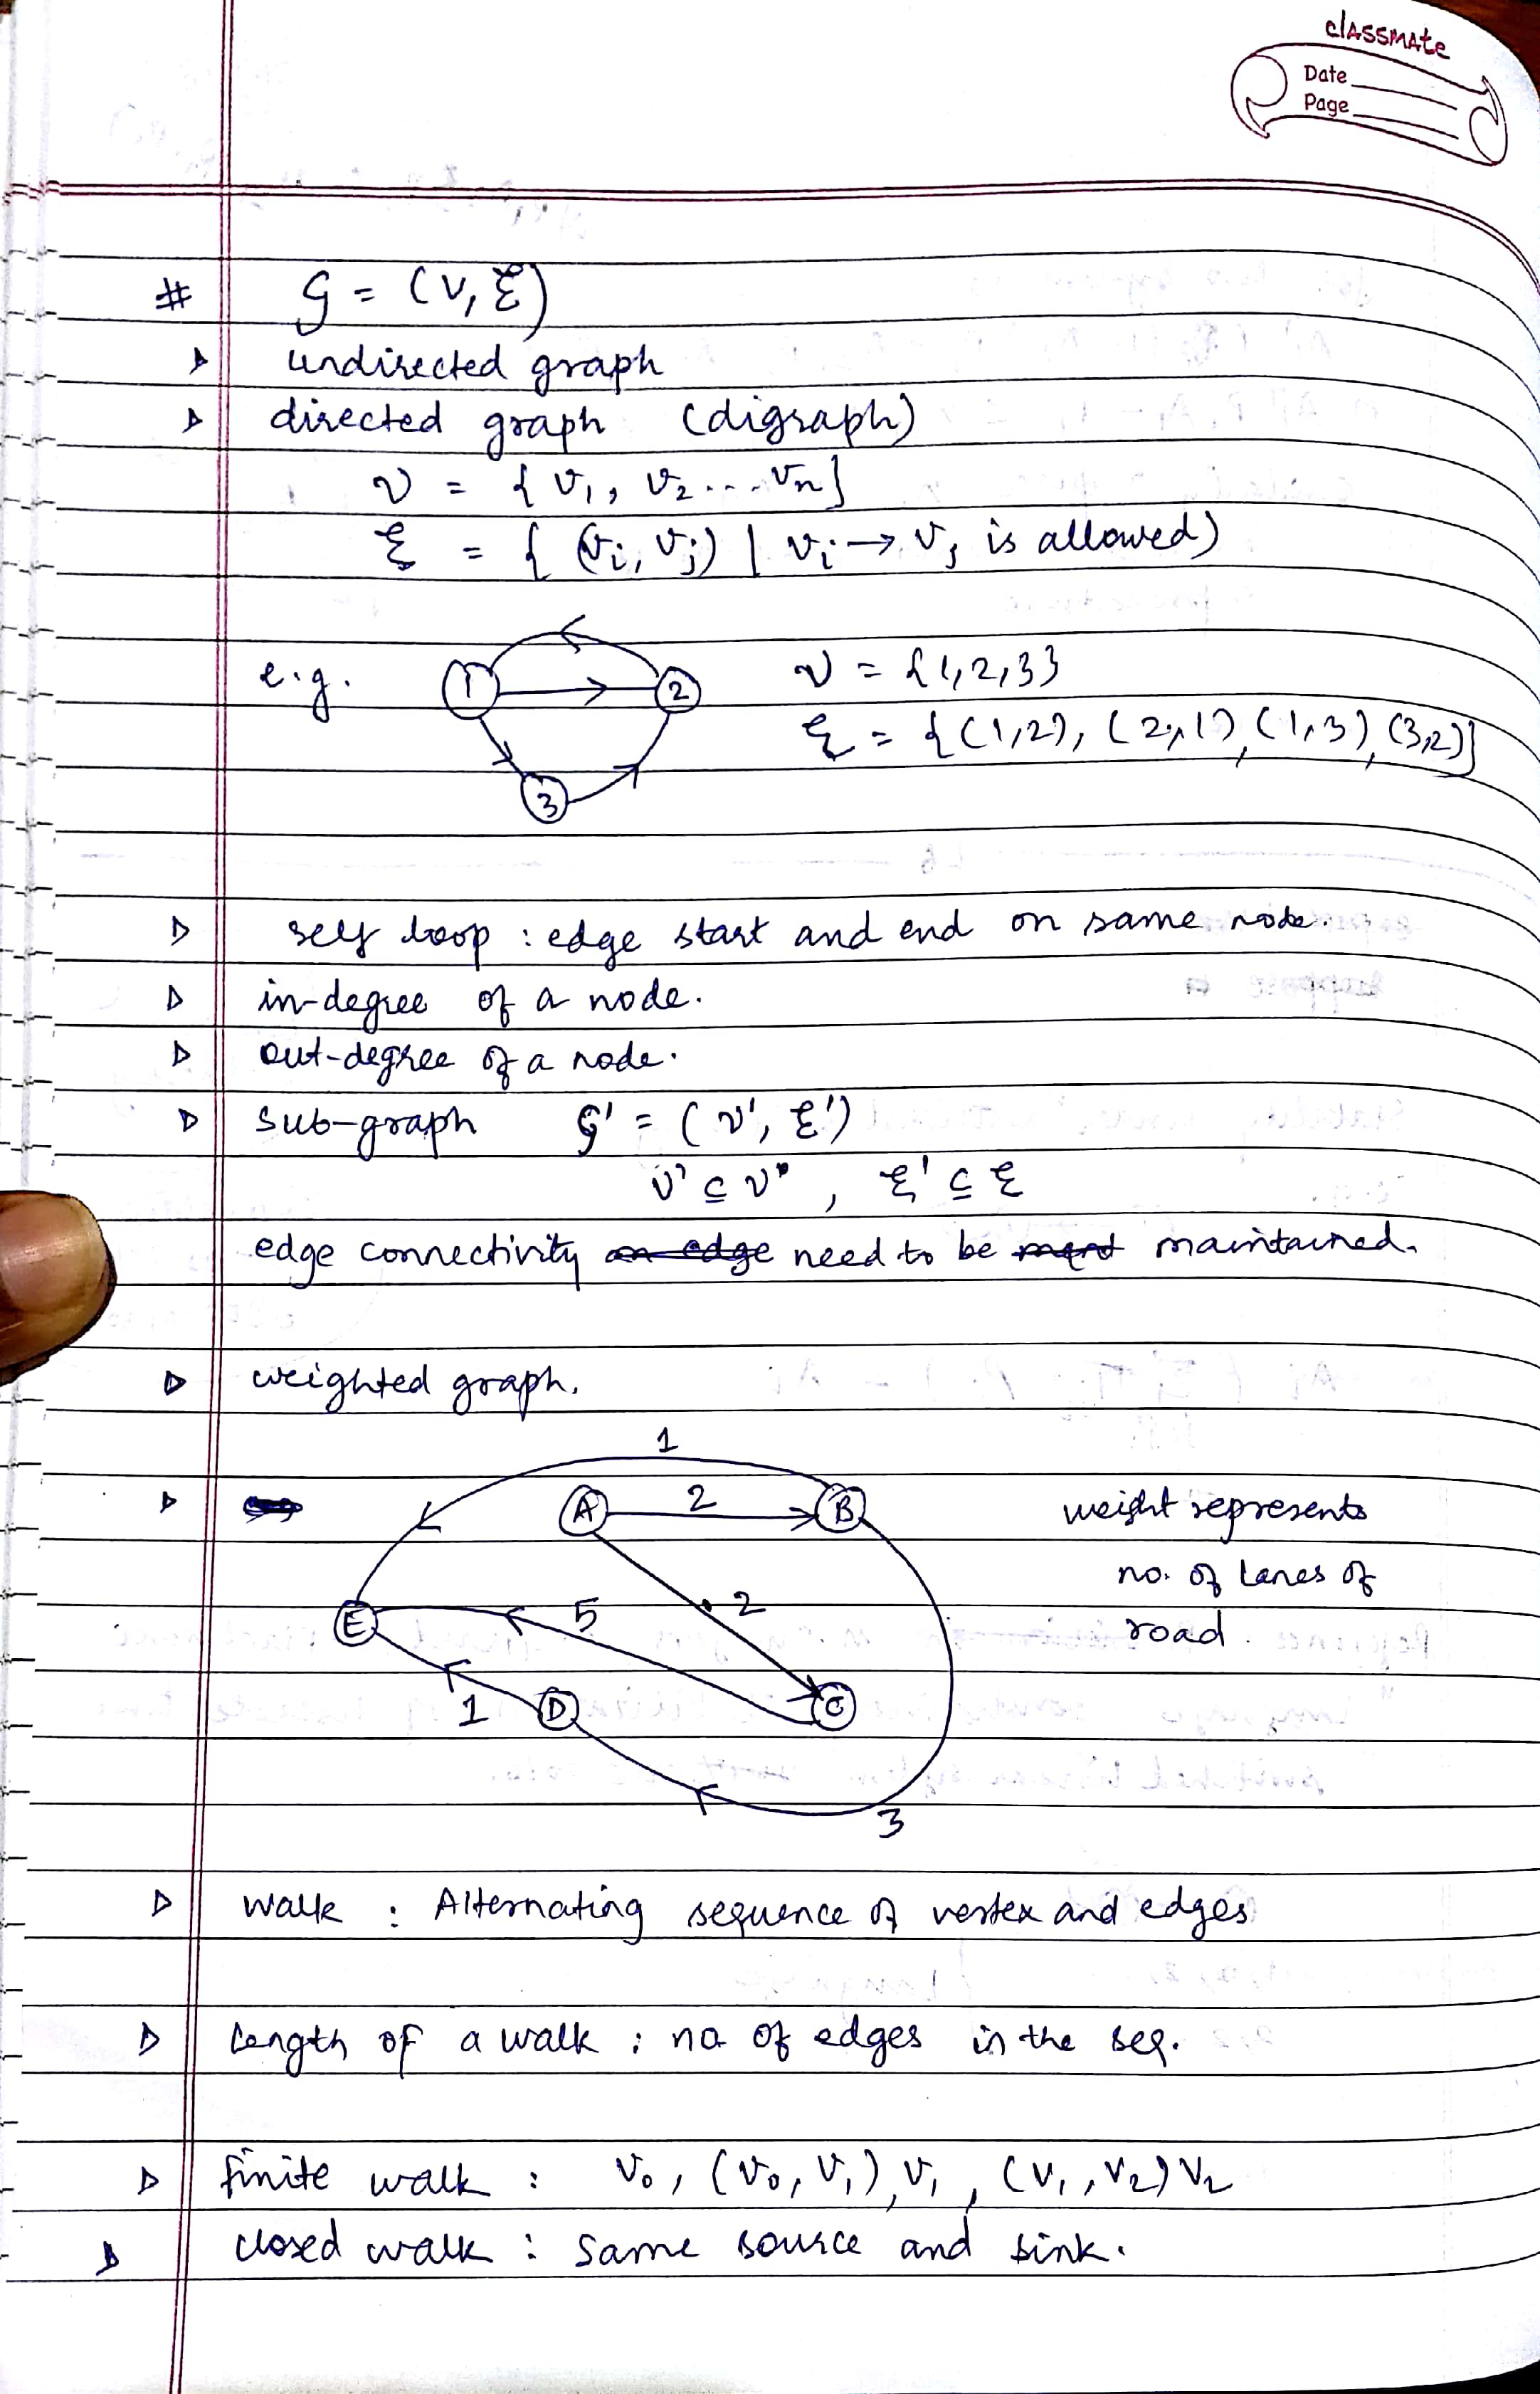 classmate
Date
Page
# G = (V, ξ)
▷ undirected graph
▷ directed graph (digraph)
V = { v₁, v₂ ... vₙ }
ξ = { (vᵢ, vⱼ) | vᵢ → vⱼ is allowed)
e.g. 1 2 3 V = {1,2,3}
ξ = { (1,2), (2,1), (1,3), (3,2)}
▷ self loop : edge start and end on same node.
▷ in-degree of a node.
▷ out-degree of a node.
▷ sub-graph G' = (V', ξ')
V' ⊆ V , ξ' ⊆ ξ
edge connectivity need to be maintained.
▷ weighted graph.
1
▷ A 2 B weight represents
no. of lanes of
E 5 2 road.
1 D C
3
▷ walk : Alternating sequence of vertex and edges
▷ Length of a walk : no of edges in the seq.
▷ finite walk : v₀, (v₀, v₁), v₁, (v₁, v₂) v₂
▷ closed walk : same source and sink.